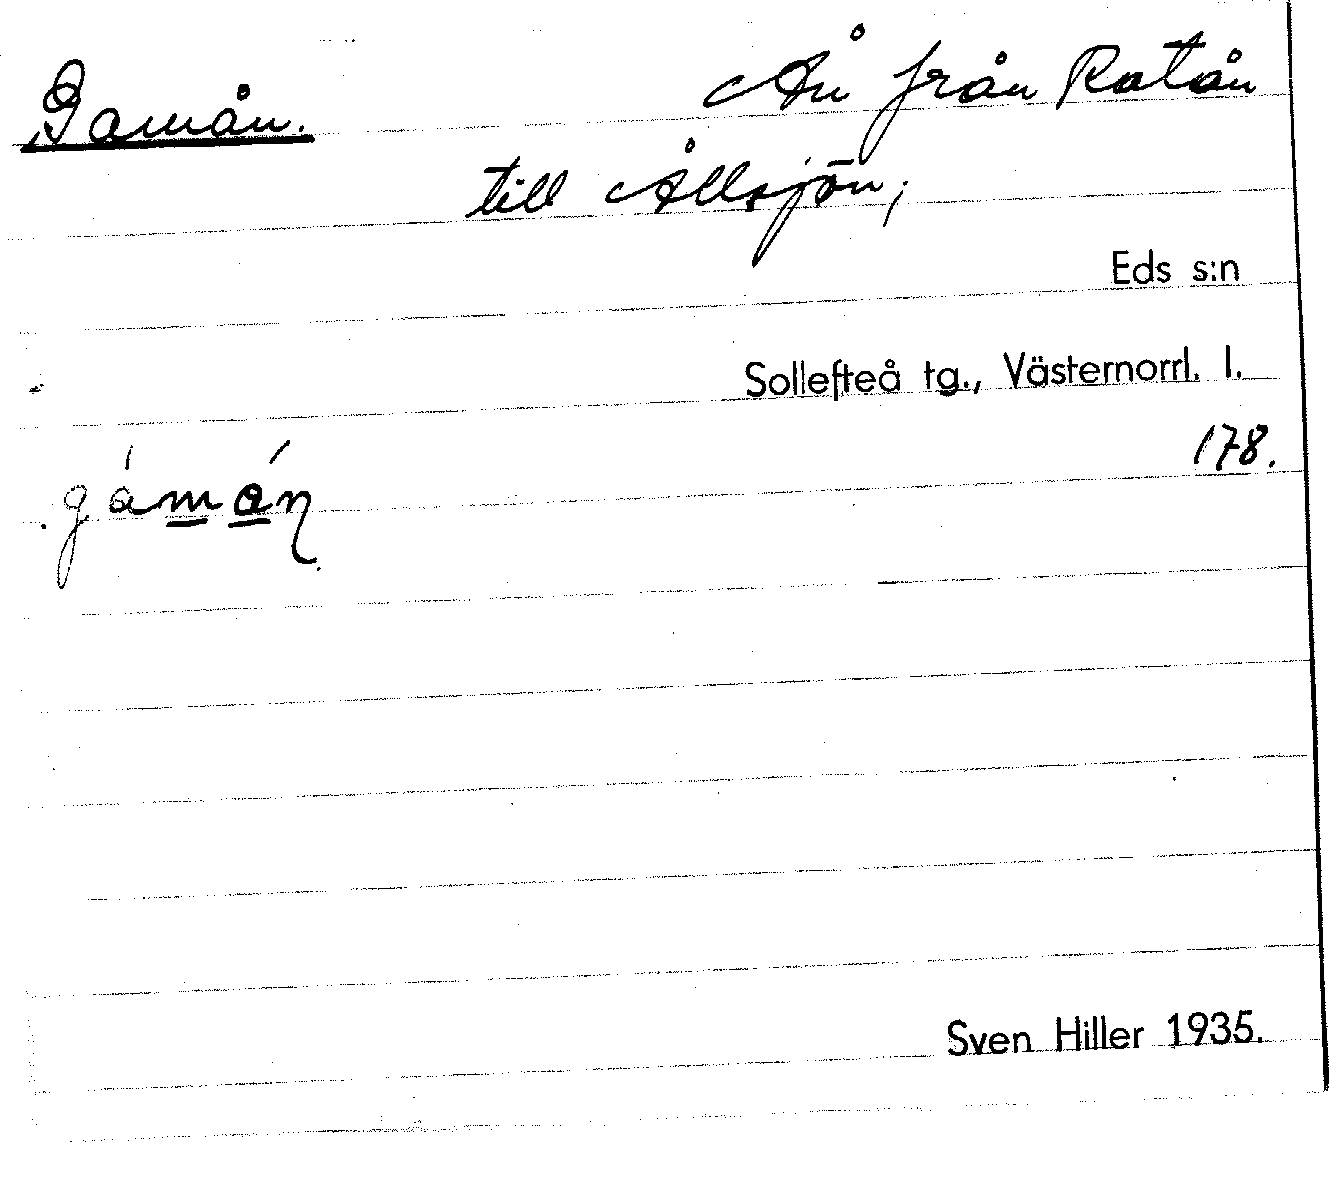 Gamån. Å från Ratån
till Ållsjön,
Eds s:n
Sollefteå tg., Västernorrl. l.
178.
gámán
Sven Hiller 1935.